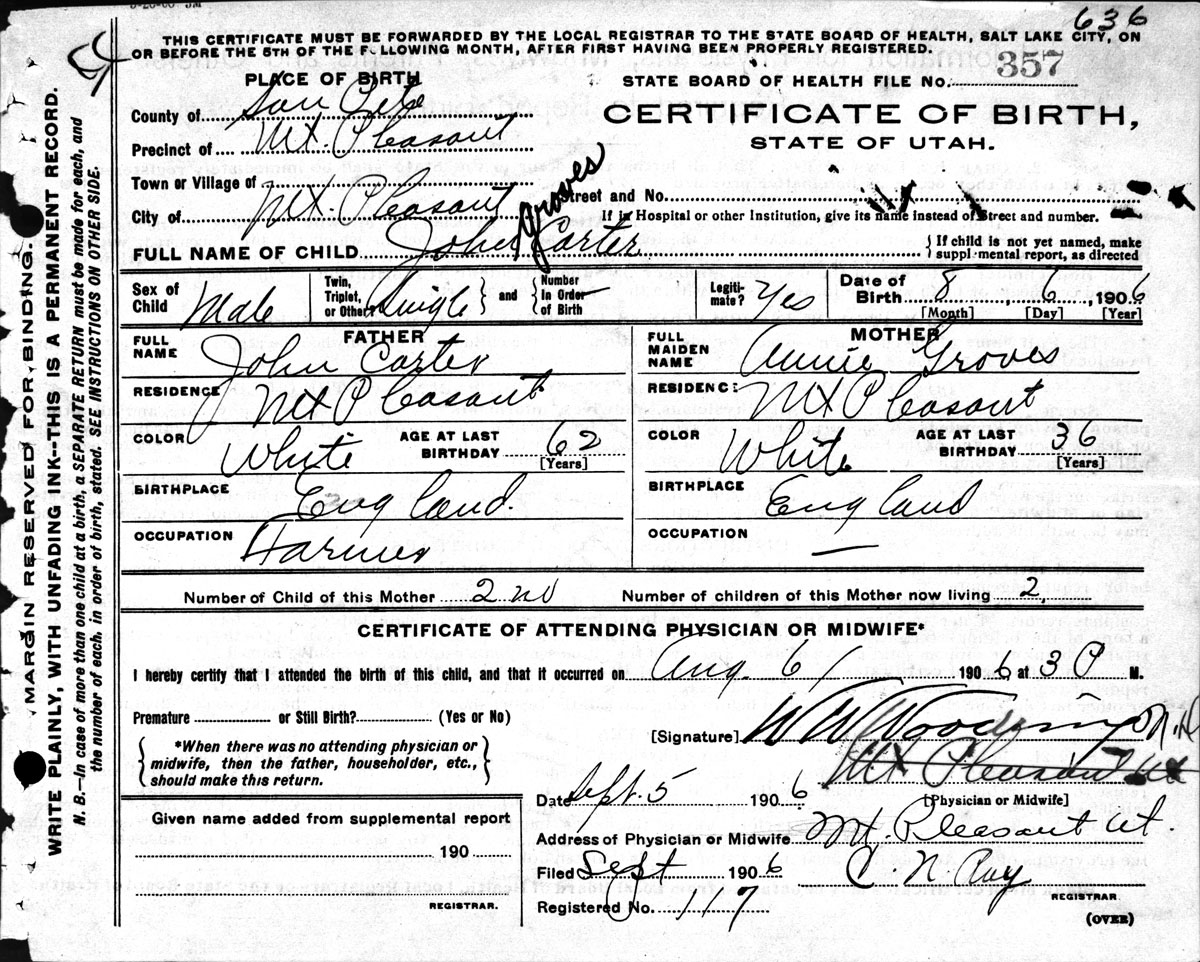 636
THIS CERTIFICATE MUST BE FORWARDED BY THE LOCAL REGISTRAR TO THE STATE BOARD OF HEALTH, SALT LAKE CITY, ON
OR BEFORE THE 5TH OF THE FOLLOWING MONTH, AFTER FIRST HAVING BEEN PROPERLY REGISTERED.
PLACE OF BIRTH
STATE BOARD OF HEALTH FILE No. 357
County of San Pete
CERTIFICATE OF BIRTH,
Precinct of Mt. Pleasant
STATE OF UTAH.
Town or Village of
Street and No.
City of Mt. Pleasant
If in Hospital or other Institution, give its name instead of Street and number.
FULL NAME OF CHILD John Groves Carter
{If child is not yet named, make
supplmental report, as directed
Sex of Child Male
Twin, Triplet, or Other Single } and { Number In Order of Birth
Legiti-mate? Yes
Date of Birth 8 6 1906
[Month] [Day] [Year]
FATHER
FULL NAME John Carter
RESIDENCE Mt Pleasant
COLOR White
AGE AT LAST BIRTHDAY 62
[Years]
BIRTHPLACE England.
OCCUPATION Farmer
MOTHER
FULL MAIDEN NAME Annie Groves
RESIDENCE Mt Pleasant
COLOR White
AGE AT LAST BIRTHDAY 36
[Years]
BIRTHPLACE England
OCCUPATION —
Number of Child of this Mother 2nd
Number of children of this Mother now living 2,
CERTIFICATE OF ATTENDING PHYSICIAN OR MIDWIFE*
I hereby certify that I attended the birth of this child, and that it occurred on Aug. 6/ 1906 at 3 P M.
Premature or Still Birth? (Yes or No)
[Signature] W W Woodring M.D.
*When there was no attending physician or
midwife, then the father, householder, etc.,
should make this return.
Mt Pleasant Ut
Date Sept. 5 1906
[Physician or Midwife]
Given name added from supplemental report
190
REGISTRAR.
Address of Physician or Midwife Mt. Pleasant Ut.
Filed Sept 1906 C. N. Ray
REGISTRAR
Registered No. 117
(OVER)
MARGIN RESERVED FOR BINDING.
WRITE PLAINLY, WITH UNFADING INK--THIS IS A PERMANENT RECORD.
N. B.—In case of more than one child at a birth, a SEPARATE RETURN must be made for each, and
the number of each, in order of birth, stated. SEE INSTRUCTIONS ON OTHER SIDE.